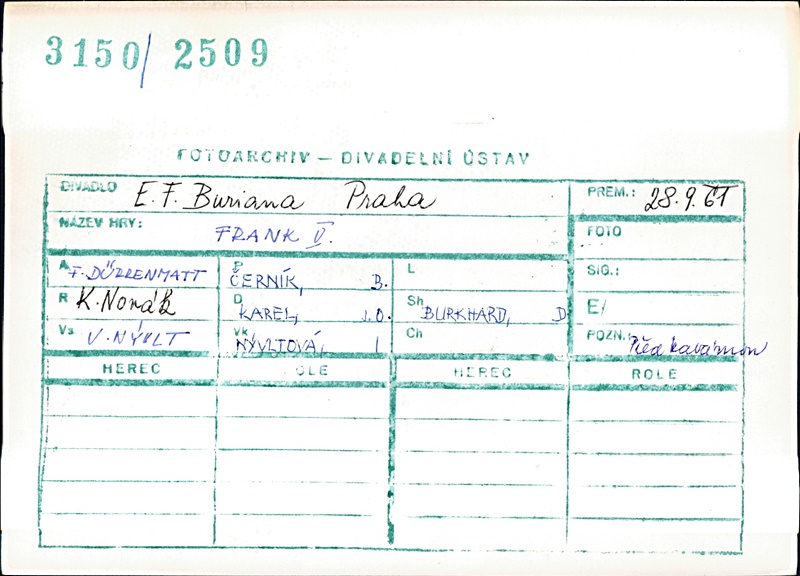 3150/ 2509
FOTOARCHIV – DIVADELNÍ ÚSTAV
DIVADLO E. F. Buriana Praha PREM.: 28.9.61
NÁZEV HRY: FRANK V. FOTO
A F. DÜRRENMATT P ČERNÍK, B. L SIG.:
R K. Novák D KAREL, J.O. Sh BURKHARD, D E/
Vs V. NÝVLT Vk NÝVLTOVÁ, I Ch POZN.: Před kavárnou
HEREC ROLE HEREC ROLE